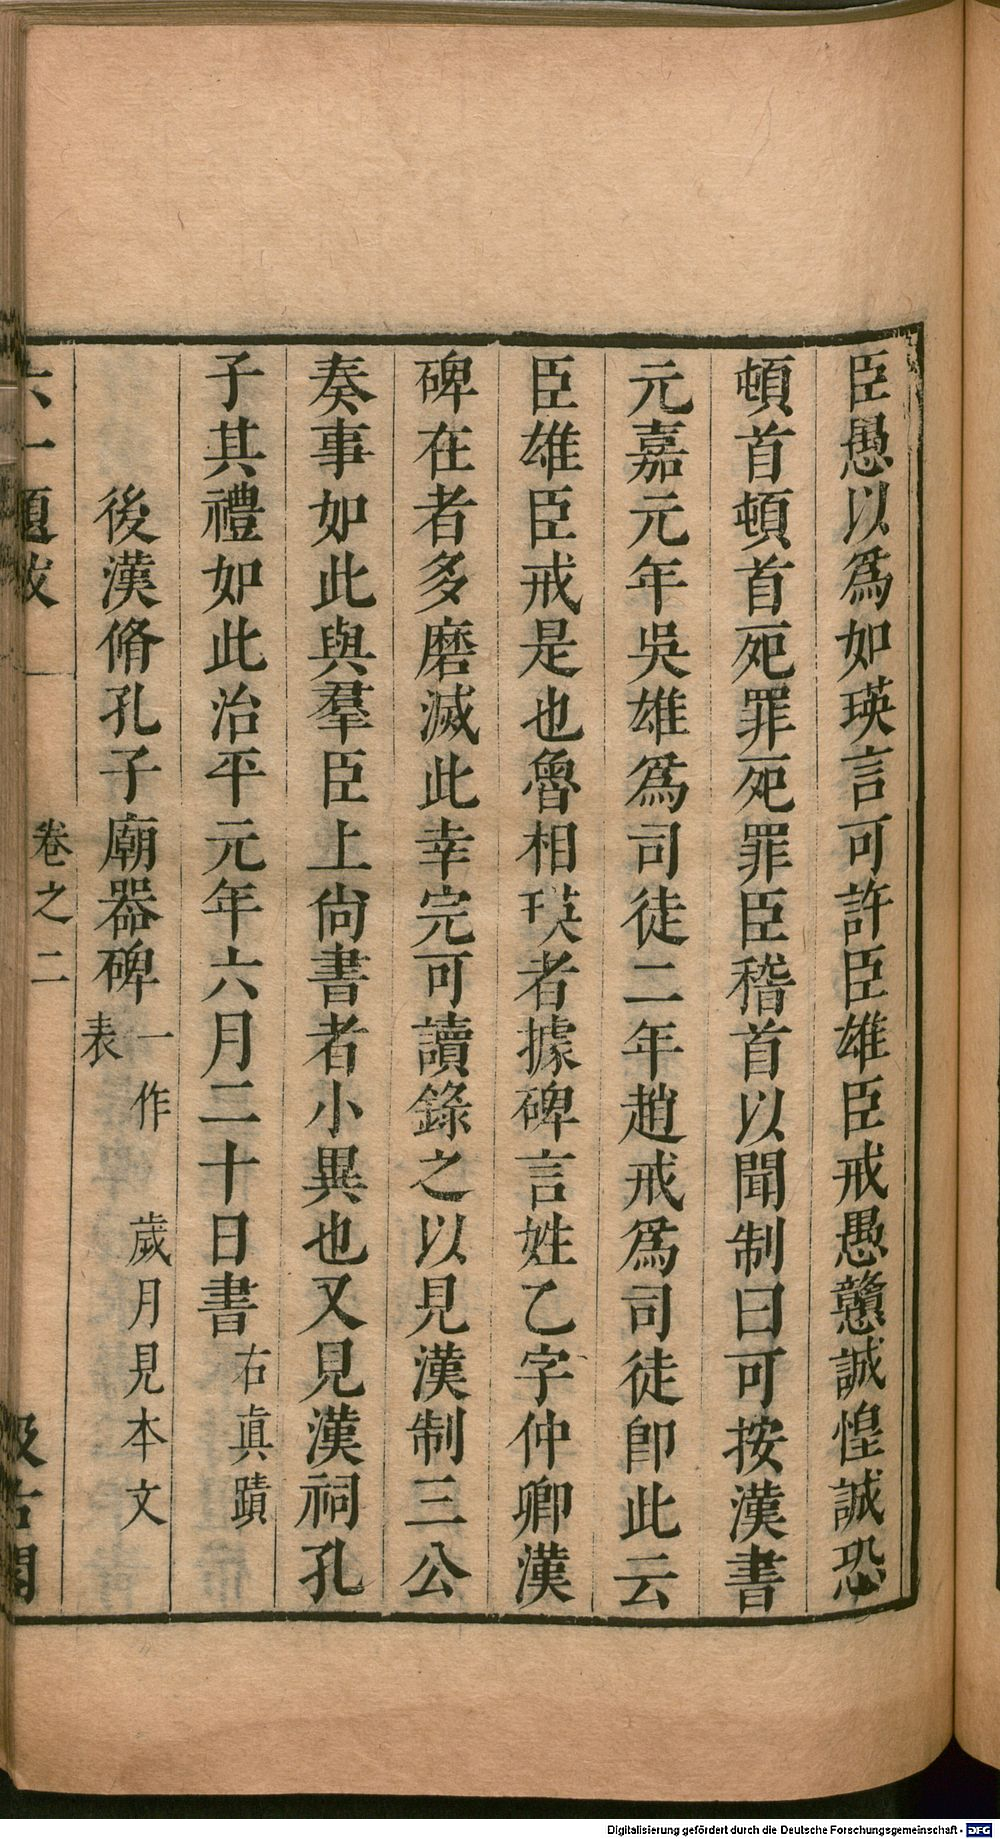 臣愚以爲如瑛言可許臣雄臣戒愚戇誠惶誠恐
頓首頓首死罪死罪臣稽首以聞制曰可按漢書
元嘉元年吳雄爲司徒二年趙戒爲司徒卽此云
臣雄臣戒是也魯相瑛者據碑言姓乙字仲卿漢
碑在者多磨滅此幸完可讀錄之以見漢制三公
奏事如此與羣臣上尙書者小異也又見漢祠孔
子其禮如此治平元年六月二十日書 右眞蹟
後漢脩孔子廟器碑 一作表 歲月見本文
六一題跋 卷之二 汲古閣
Digitalisierung gefördert durch die Deutsche Forschungsgemeinschaft - DFG